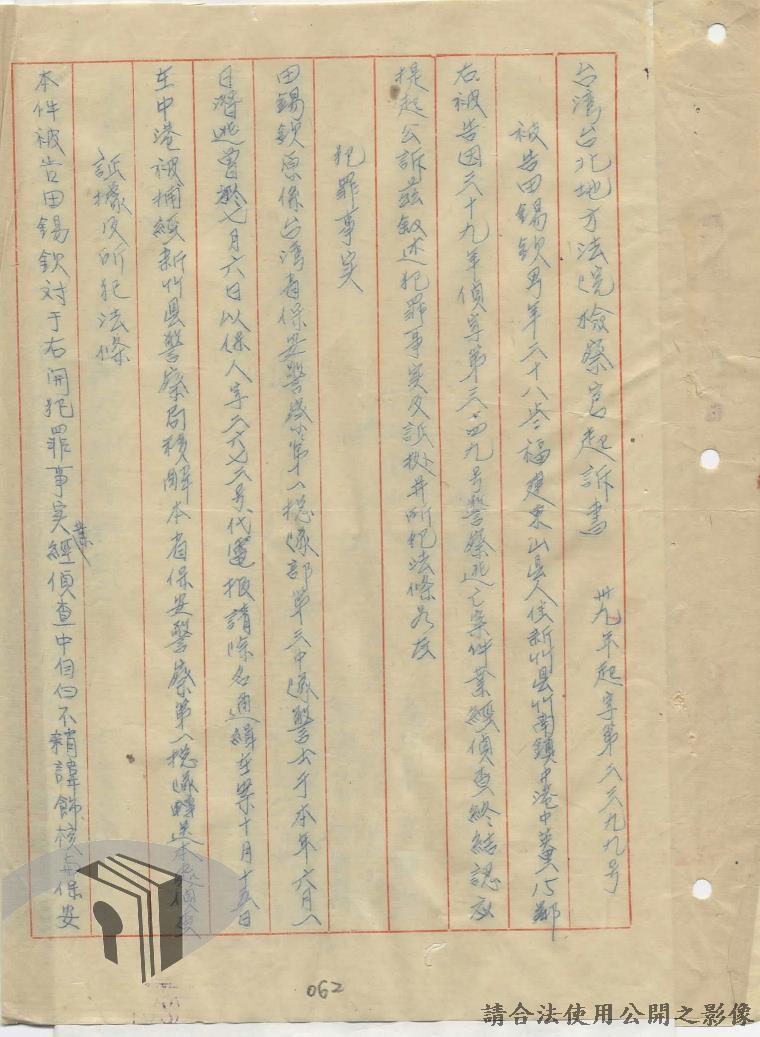 台湾台北地方法院檢察官起訴書 卅九年起字第二三九九号
被告田錫欽男年二十八岁福建東山县人住新竹县竹南鎮中港中英里15鄰
右被告因三十九年偵字第三四九号警察逃亡案件業經偵查終結認应
提起公訴茲叙述犯罪事实及証据并所犯法條於左
犯罪事实
田錫欽原係台湾省保安警察第一總隊部第三中隊警士于本年六月一
日潛逃曾於七月六日以保人字二六七三号代電报請除名通緝在案十月十五日
在中港被捕經新竹县警察局移解本省保安警察第一總隊轉送本
証據及所犯法條
本件被告田錫欽対于右開犯罪事实業經偵查中自白不稍諱飾核与保安
062
請合法使用公開之影像